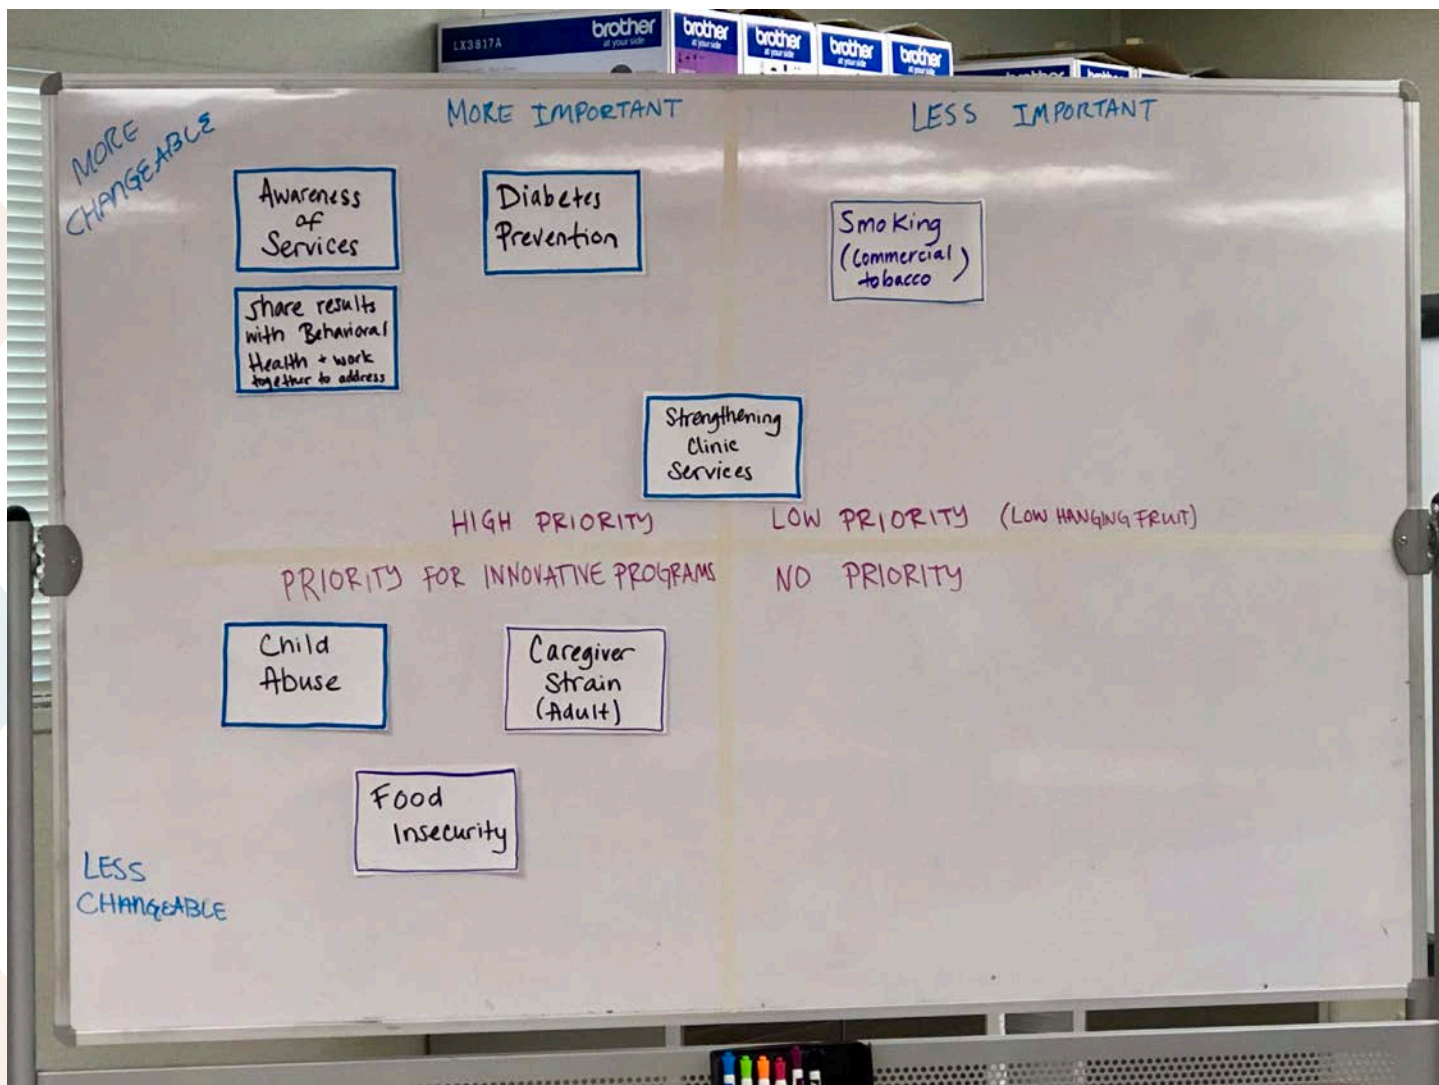 LX3817A
brother
at your side
brother
at your side
brother
at your side
brother
at your side
brother
at your side
brother
MORE IMPORTANT
LESS IMPORTANT
MORE
CHANGEABLE
Awareness
of
Services
Diabetes
Prevention
Smoking
(Commercial)
tobacco
share results
with Behavioral
Health + work
together to address
Strengthening
Clinic
Services
HIGH PRIORITY
LOW PRIORITY (LOW HANGING FRUIT)
PRIORITY FOR INNOVATIVE PROGRAMS
NO PRIORITY
Child
Abuse
Caregiver
Strain
(Adult)
Food
Insecurity
LESS
CHANGEABLE